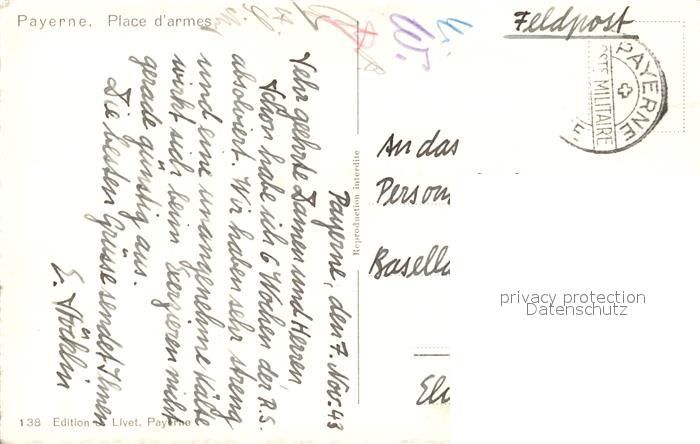 Payerne. Place d'armes
Payerne, den 7. Nov. 43
Sehr geehrte Damen und Herren,
Schon habe ich 6 Wochen der R.S.
absolviert. Wir haben sehr streng
und eine unangenehme Kälte
wirkt sich beim Exerzieren nicht
gerade günstig aus.
Die besten Grüsse sendet Ihnen
E. Stöcklin
Reproduction interdite
138 Edition Livet, Payerne
Feldpost
PAYERNE
POSTE MILITAIRE
An das
Person
Basella
privacy protection
Datenschutz